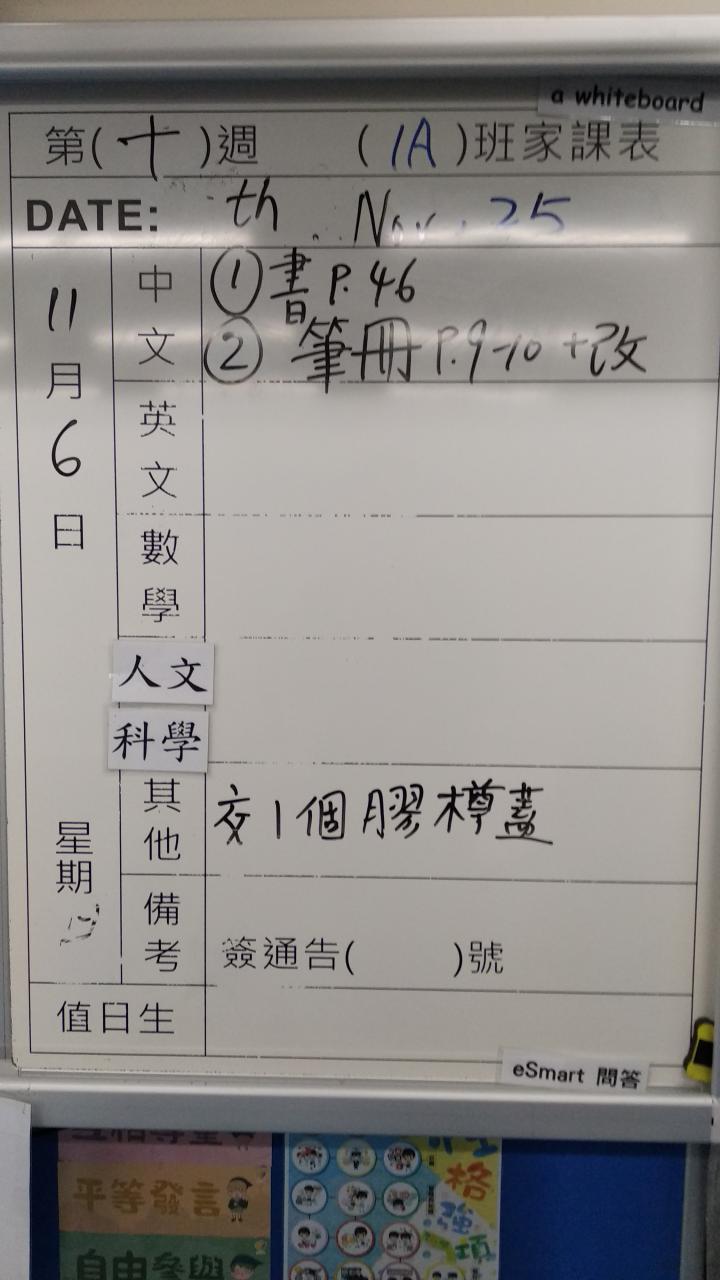 a whiteboard
第(十)週 (1A)班家課表
DATE: th Nov. 25
11月6日
星期
中文
①書 P.46
②筆冊 P.9-10 +改
英文
數學
人文
科學
其他
交1個膠樽蓋
備考
簽通告( )號
值日生
eSmart 問答
平等發言
自由參與
格
強
項